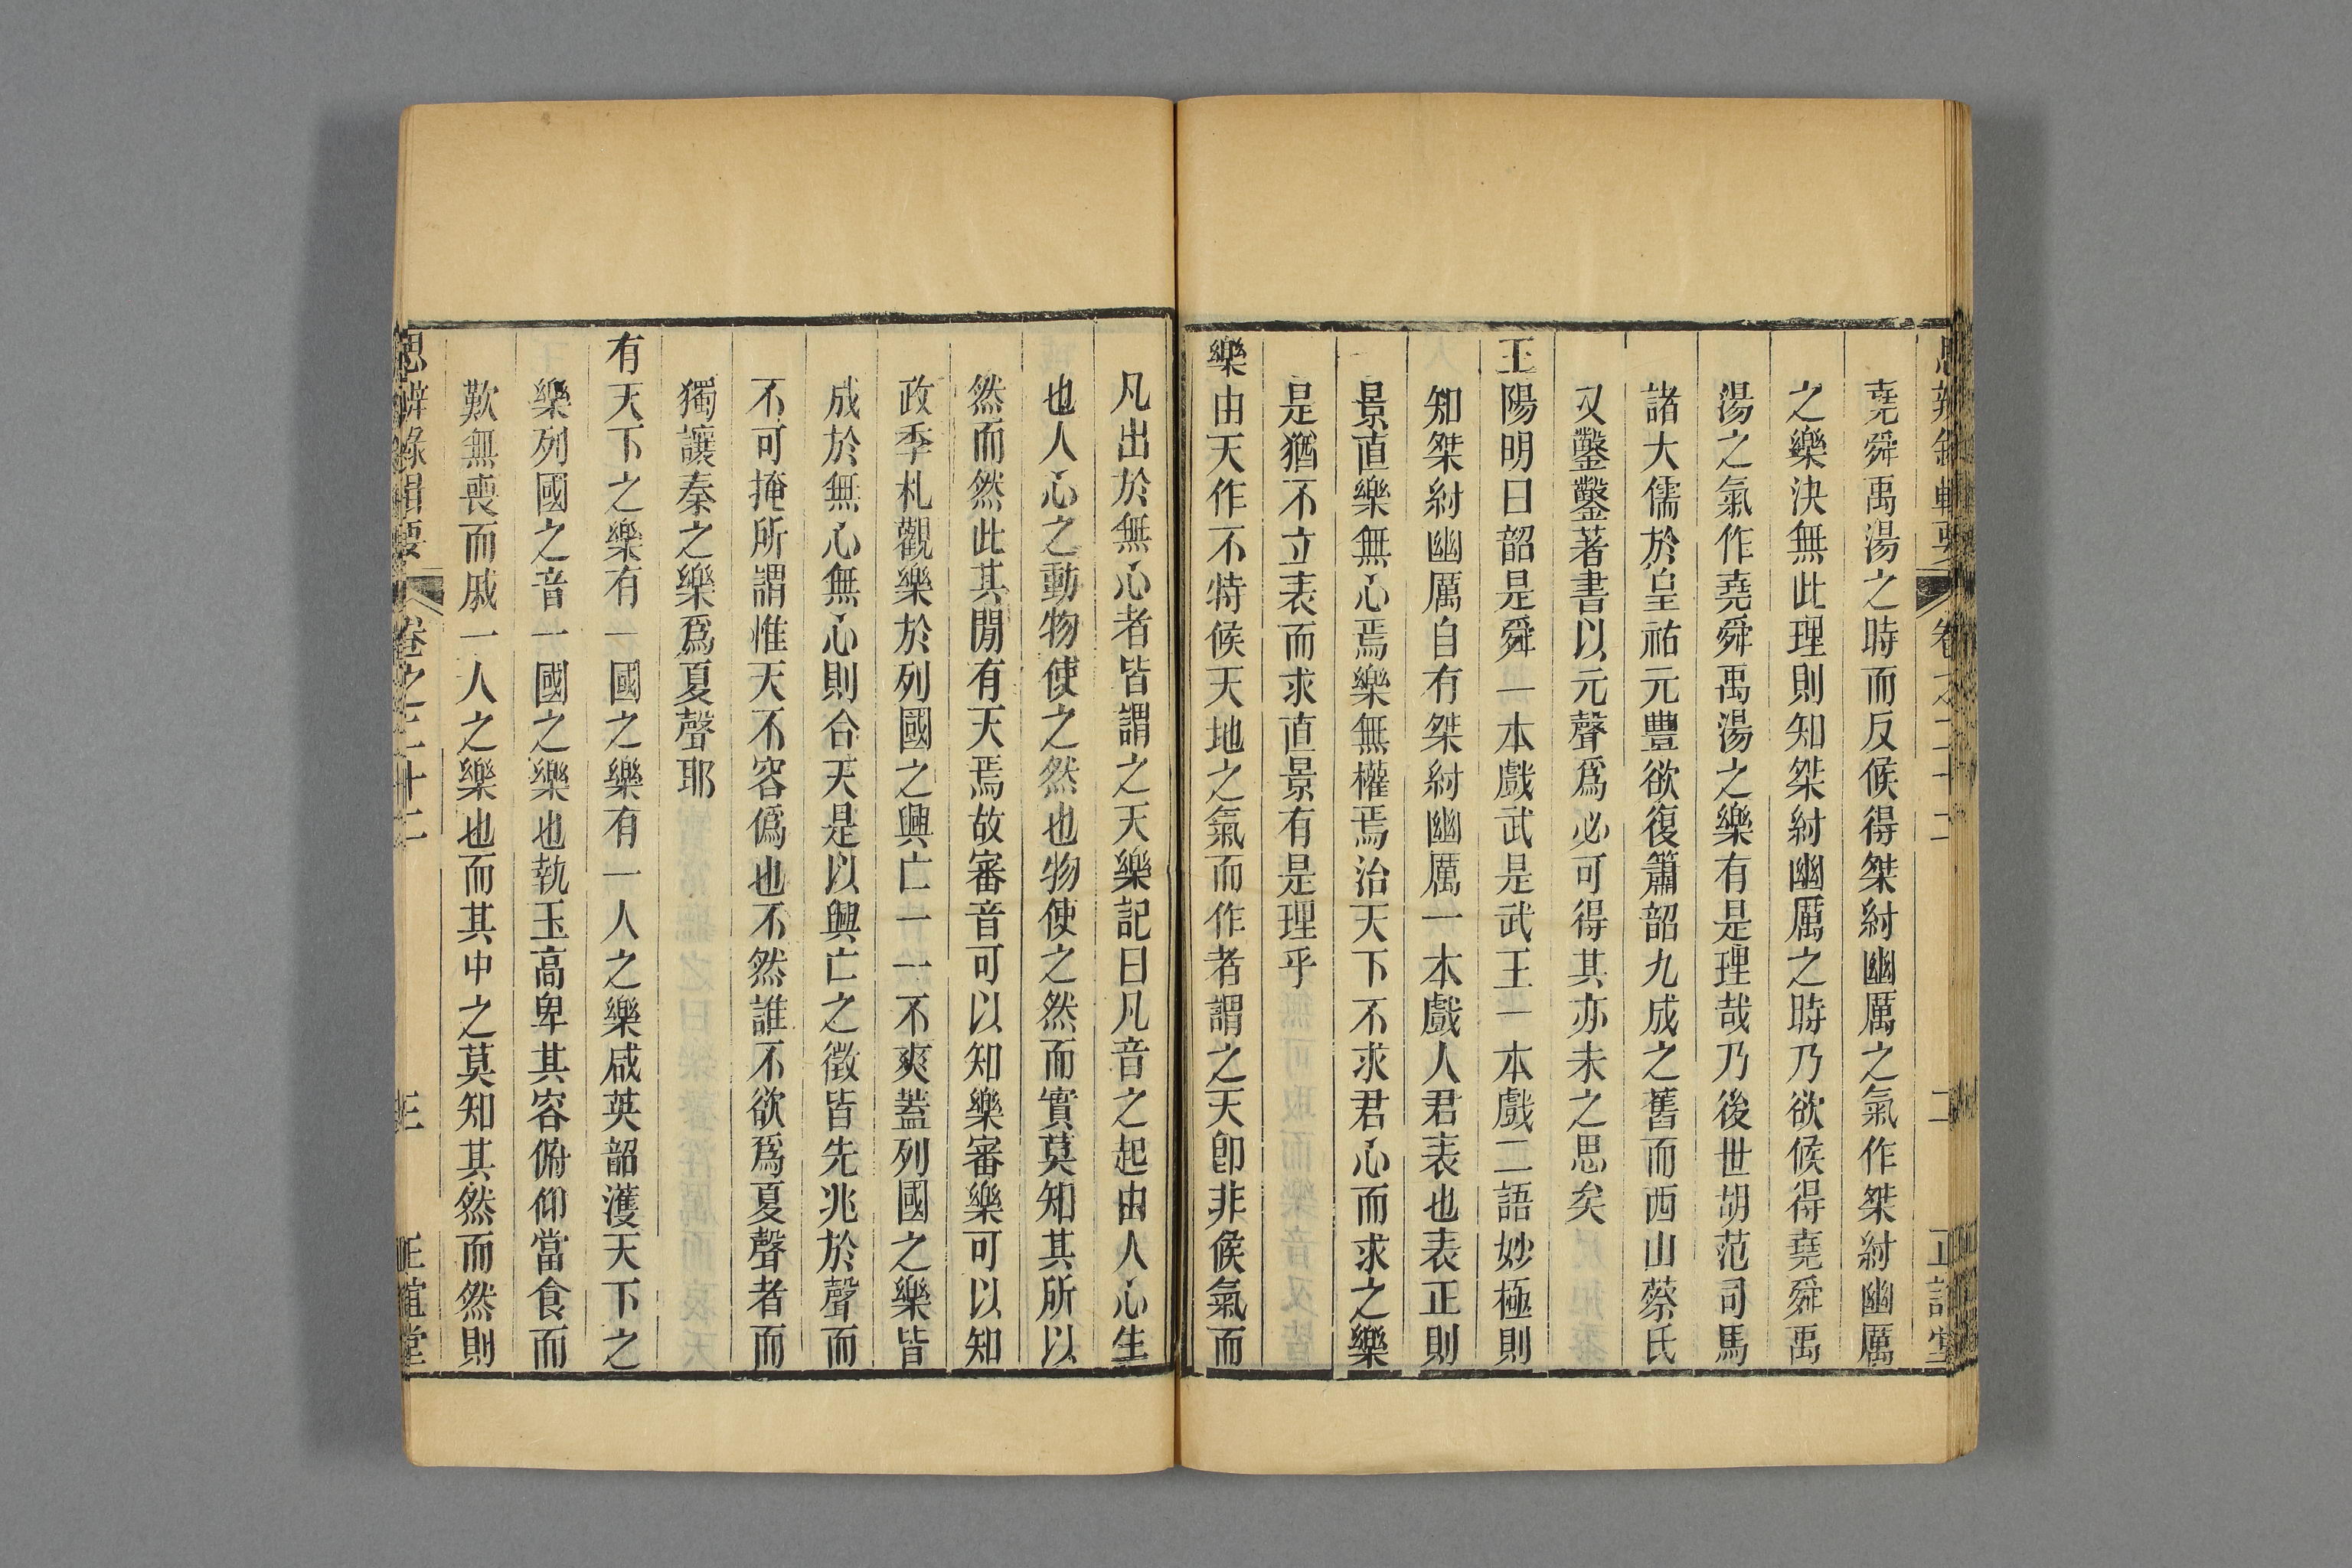 思辨錄輯要 卷之二十二 二 正誼堂
堯舜禹湯之時而反候得桀紂幽厲之氣作桀紂幽厲
之樂決無此理則知桀紂幽厲之時乃欲候得堯舜禹
湯之氣作堯舜禹湯之樂有是理哉乃後世胡范司馬
諸大儒於皇祐元豐欲復簫韶九成之舊而西山蔡氏
又鑿鑿著書以元聲爲必可得其亦未之思矣
王陽明曰韶是舜一本戲武是武王一本戲二語妙極則
知桀紂幽厲自有桀紂幽厲一本戲人君表也表正則
景直樂無心焉樂無權焉治天下不求君心而求之樂
是猶不立表而求直景有是理乎
樂由天作不特候天地之氣而作者謂之天卽非候氣而
凡出於無心者皆謂之天樂記曰凡音之起由人心生
也人心之動物使之然也物使之然而實莫知其所以
然而然此其閒有天焉故審音可以知樂審樂可以知
政季札觀樂於列國之興亡一一不爽蓋列國之樂皆
成於無心無心則合天是以興亡之徵皆先兆於聲而
不可掩所謂惟天不容僞也不然誰不欲爲夏聲者而
獨讓秦之樂爲夏聲耶
有天下之樂有一國之樂有一人之樂咸英韶濩天下之
樂列國之音一國之樂也執玉高卑其容俯仰當食而
歎無喪而戚一人之樂也而其中之莫知其然而然則
思辨錄輯要 卷之二十二 三 正誼堂